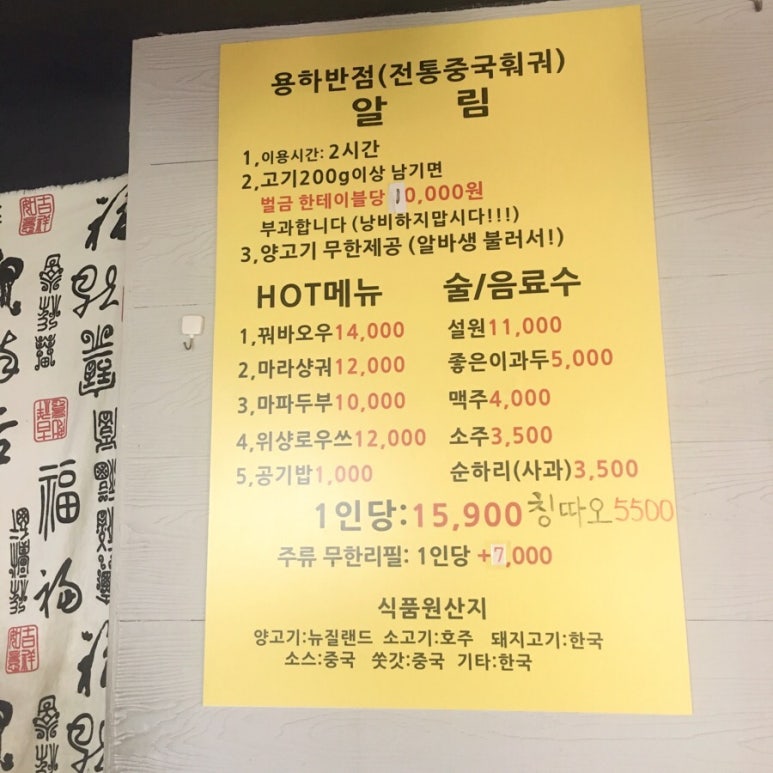 용하반점(전통중국훠궈)
알 림
1,이용시간: 2시간
2,고기200g이상 남기면
벌금 한테이블당 10,000원
부과합니다 (낭비하지맙시다!!!)
3,양고기 무한제공 (알바생 불러서!)
HOT메뉴
1,꿔바오우14,000
2,마라샹궈12,000
3,마파두부10,000
4,위샹로우쓰12,000
5,공기밥1,000
술/음료수
설원11,000
좋은이과두5,000
맥주4,000
소주3,500
순하리(사과)3,500
1인당:15,900 칭따오5500
주류 무한리필: 1인당 +7,000
식품원산지
양고기:뉴질랜드 소고기:호주 돼지고기:한국
소스:중국 쑷갓:중국 기타:한국
福
福